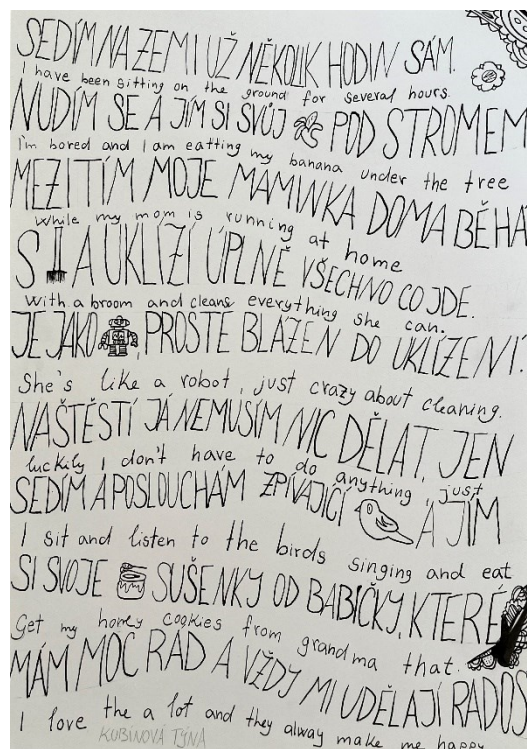 SEDÍM NA ZEMI UŽ NĚKOLIK HODIN SÁM.
I have been sitting on the ground for several hours.
NUDÍM SE A JÍM SI SVŮJ POD STROMEM
I'm bored and I am eatting my banana under the tree
MEZITÍM MOJE MAMINKA DOMA BĚHÁ
While my mom is running at home
S A UKLÍZÍ ÚPLNĚ VŠECHNO CO JDE.
With a broom and cleans everything she can.
JE JAKO , PROSTĚ BLÁZEN DO UKLÍZENÍ.
She's like a robot, just crazy about cleaning.
NAŠTĚSTÍ JÁ NEMUSÍM NIC DĚLAT, JEN
luckily I don't have to do anything, just
SEDÍM A POSLOUCHÁM ZPÍVAJÍCÍ A JÍM
I sit and listen to the birds singing and eat
SI SVOJE SUŠENKY OD BABIČKY, KTERÉ
Get my honey cookies from grandma that.
MÁM MOC RÁD A VŽDY MI UDĚLAJÍ RADOS
I love the a lot and they alway make me happy
KUBINOVÁ TÝNA